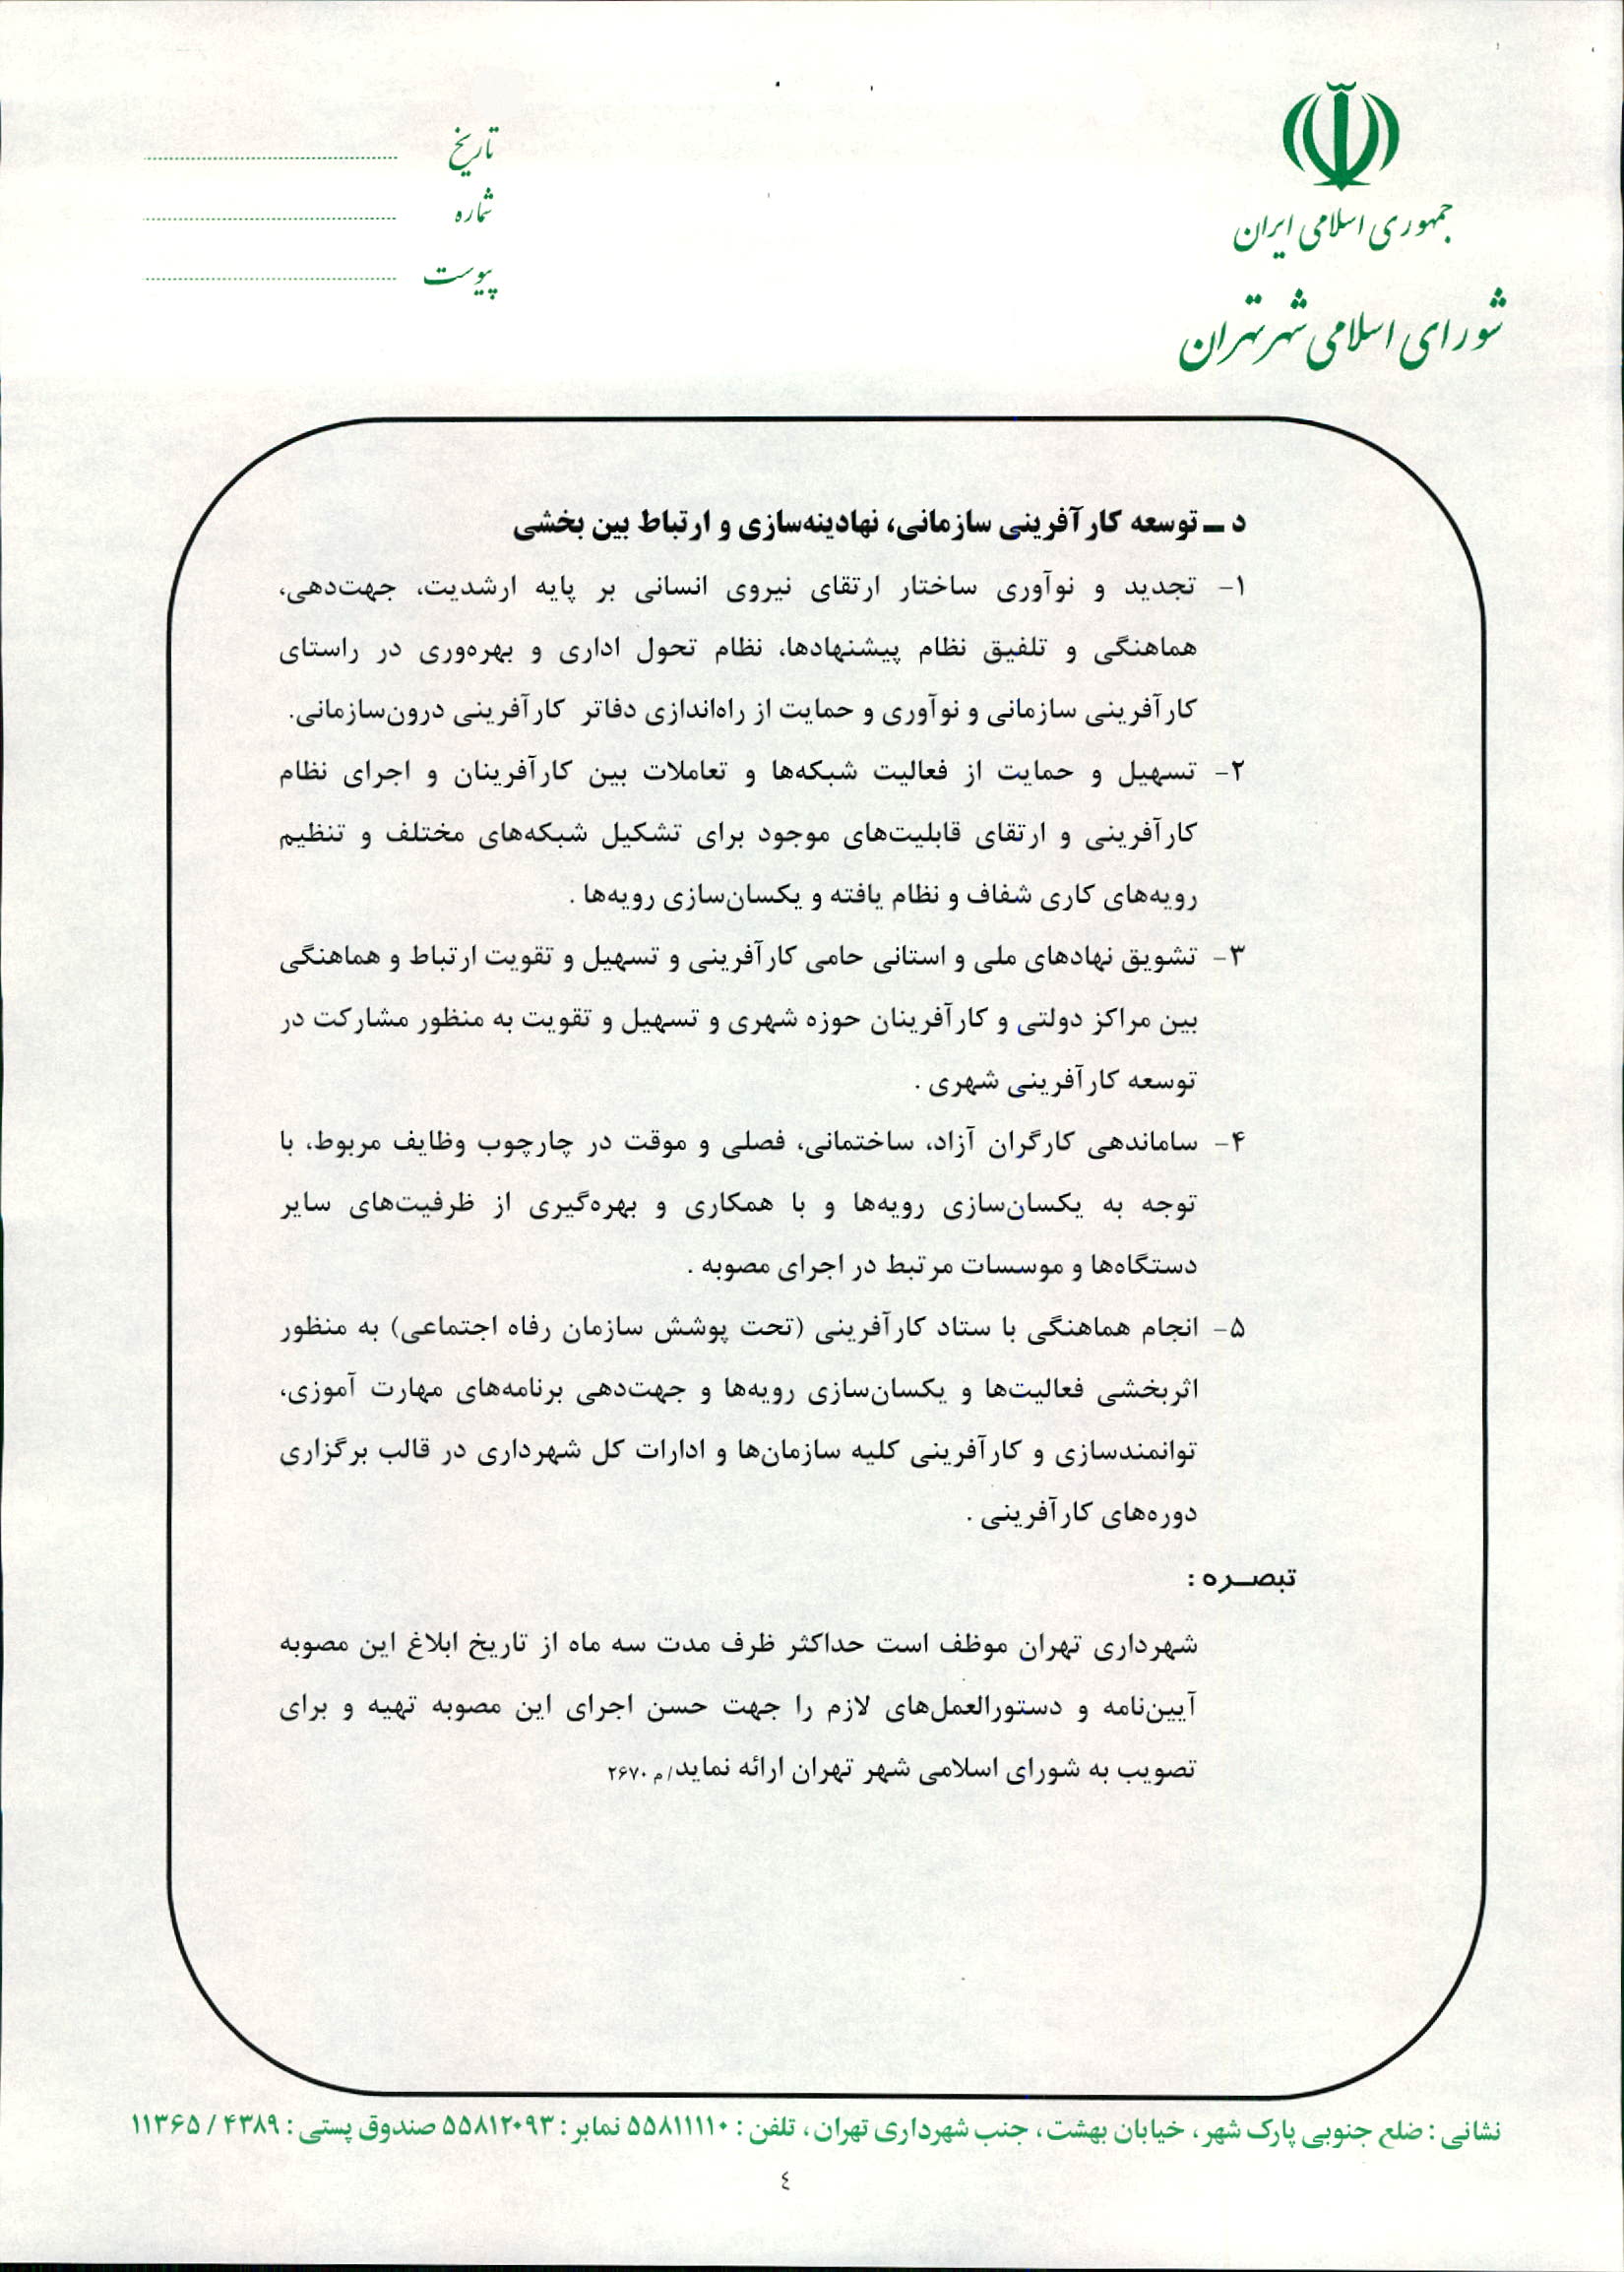 جمهوری اسلامی ایران
شورای اسلامی شهر تهران
تاریخ
شماره
پیوست
د ـ توسعه کارآفرینی سازمانی، نهادینه‌سازی و ارتباط بین بخشی
۱- تجدید و نوآوری ساختار ارتقای نیروی انسانی بر پایه ارشدیت، جهت‌دهی،
هماهنگی و تلفیق نظام پیشنهادها، نظام تحول اداری و بهره‌وری در راستای
کارآفرینی سازمانی و نوآوری و حمایت از راه‌اندازی دفاتر کارآفرینی درون‌سازمانی.
۲- تسهیل و حمایت از فعالیت شبکه‌ها و تعاملات بین کارآفرینان و اجرای نظام
کارآفرینی و ارتقای قابلیت‌های موجود برای تشکیل شبکه‌های مختلف و تنظیم
رویه‌های کاری شفاف و نظام یافته و یکسان‌سازی رویه‌ها .
۳- تشویق نهادهای ملی و استانی حامی کارآفرینی و تسهیل و تقویت ارتباط و هماهنگی
بین مراکز دولتی و کارآفرینان حوزه شهری و تسهیل و تقویت به منظور مشارکت در
توسعه کارآفرینی شهری .
۴- ساماندهی کارگران آزاد، ساختمانی، فصلی و موقت در چارچوب وظایف مربوط، با
توجه به یکسان‌سازی رویه‌ها و با همکاری و بهره‌گیری از ظرفیت‌های سایر
دستگاه‌ها و موسسات مرتبط در اجرای مصوبه .
۵- انجام هماهنگی با ستاد کارآفرینی (تحت پوشش سازمان رفاه اجتماعی) به منظور
اثربخشی فعالیت‌ها و یکسان‌سازی رویه‌ها و جهت‌دهی برنامه‌های مهارت آموزی،
توانمندسازی و کارآفرینی کلیه سازمان‌ها و ادارات کل شهرداری در قالب برگزاری
دوره‌های کارآفرینی .
تبصـره :
شهرداری تهران موظف است حداکثر ظرف مدت سه ماه از تاریخ ابلاغ این مصوبه
آیین‌نامه و دستورالعمل‌های لازم را جهت حسن اجرای این مصوبه تهیه و برای
تصویب به شورای اسلامی شهر تهران ارائه نماید/م ۲۶۷۰
نشانی : ضلع جنوبی پارک شهر ، خیابان بهشت ، جنب شهرداری تهران ، تلفن : ۵۵۸۱۱۱۱۰ نمابر : ۵۵۸۱۲۰۹۳ صندوق پستی : ۴۳۸۹ / ۱۱۳۶۵
٤